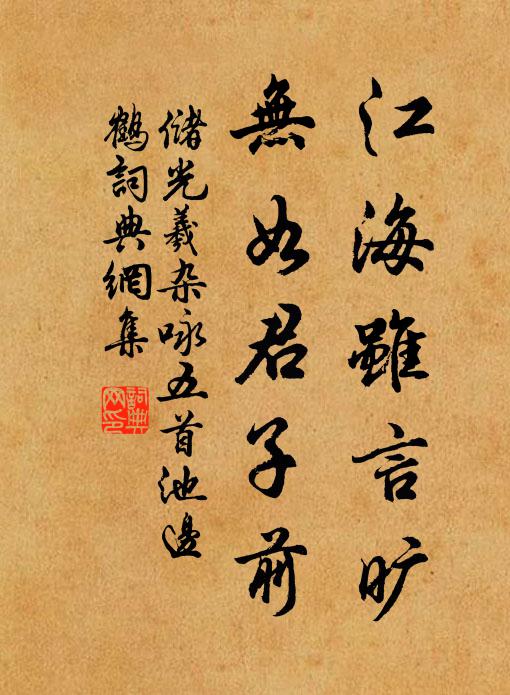 江海雖言旷
無如君子前
儲光羲杂咏五首池邊
鶴詞典網集
詞典
网印